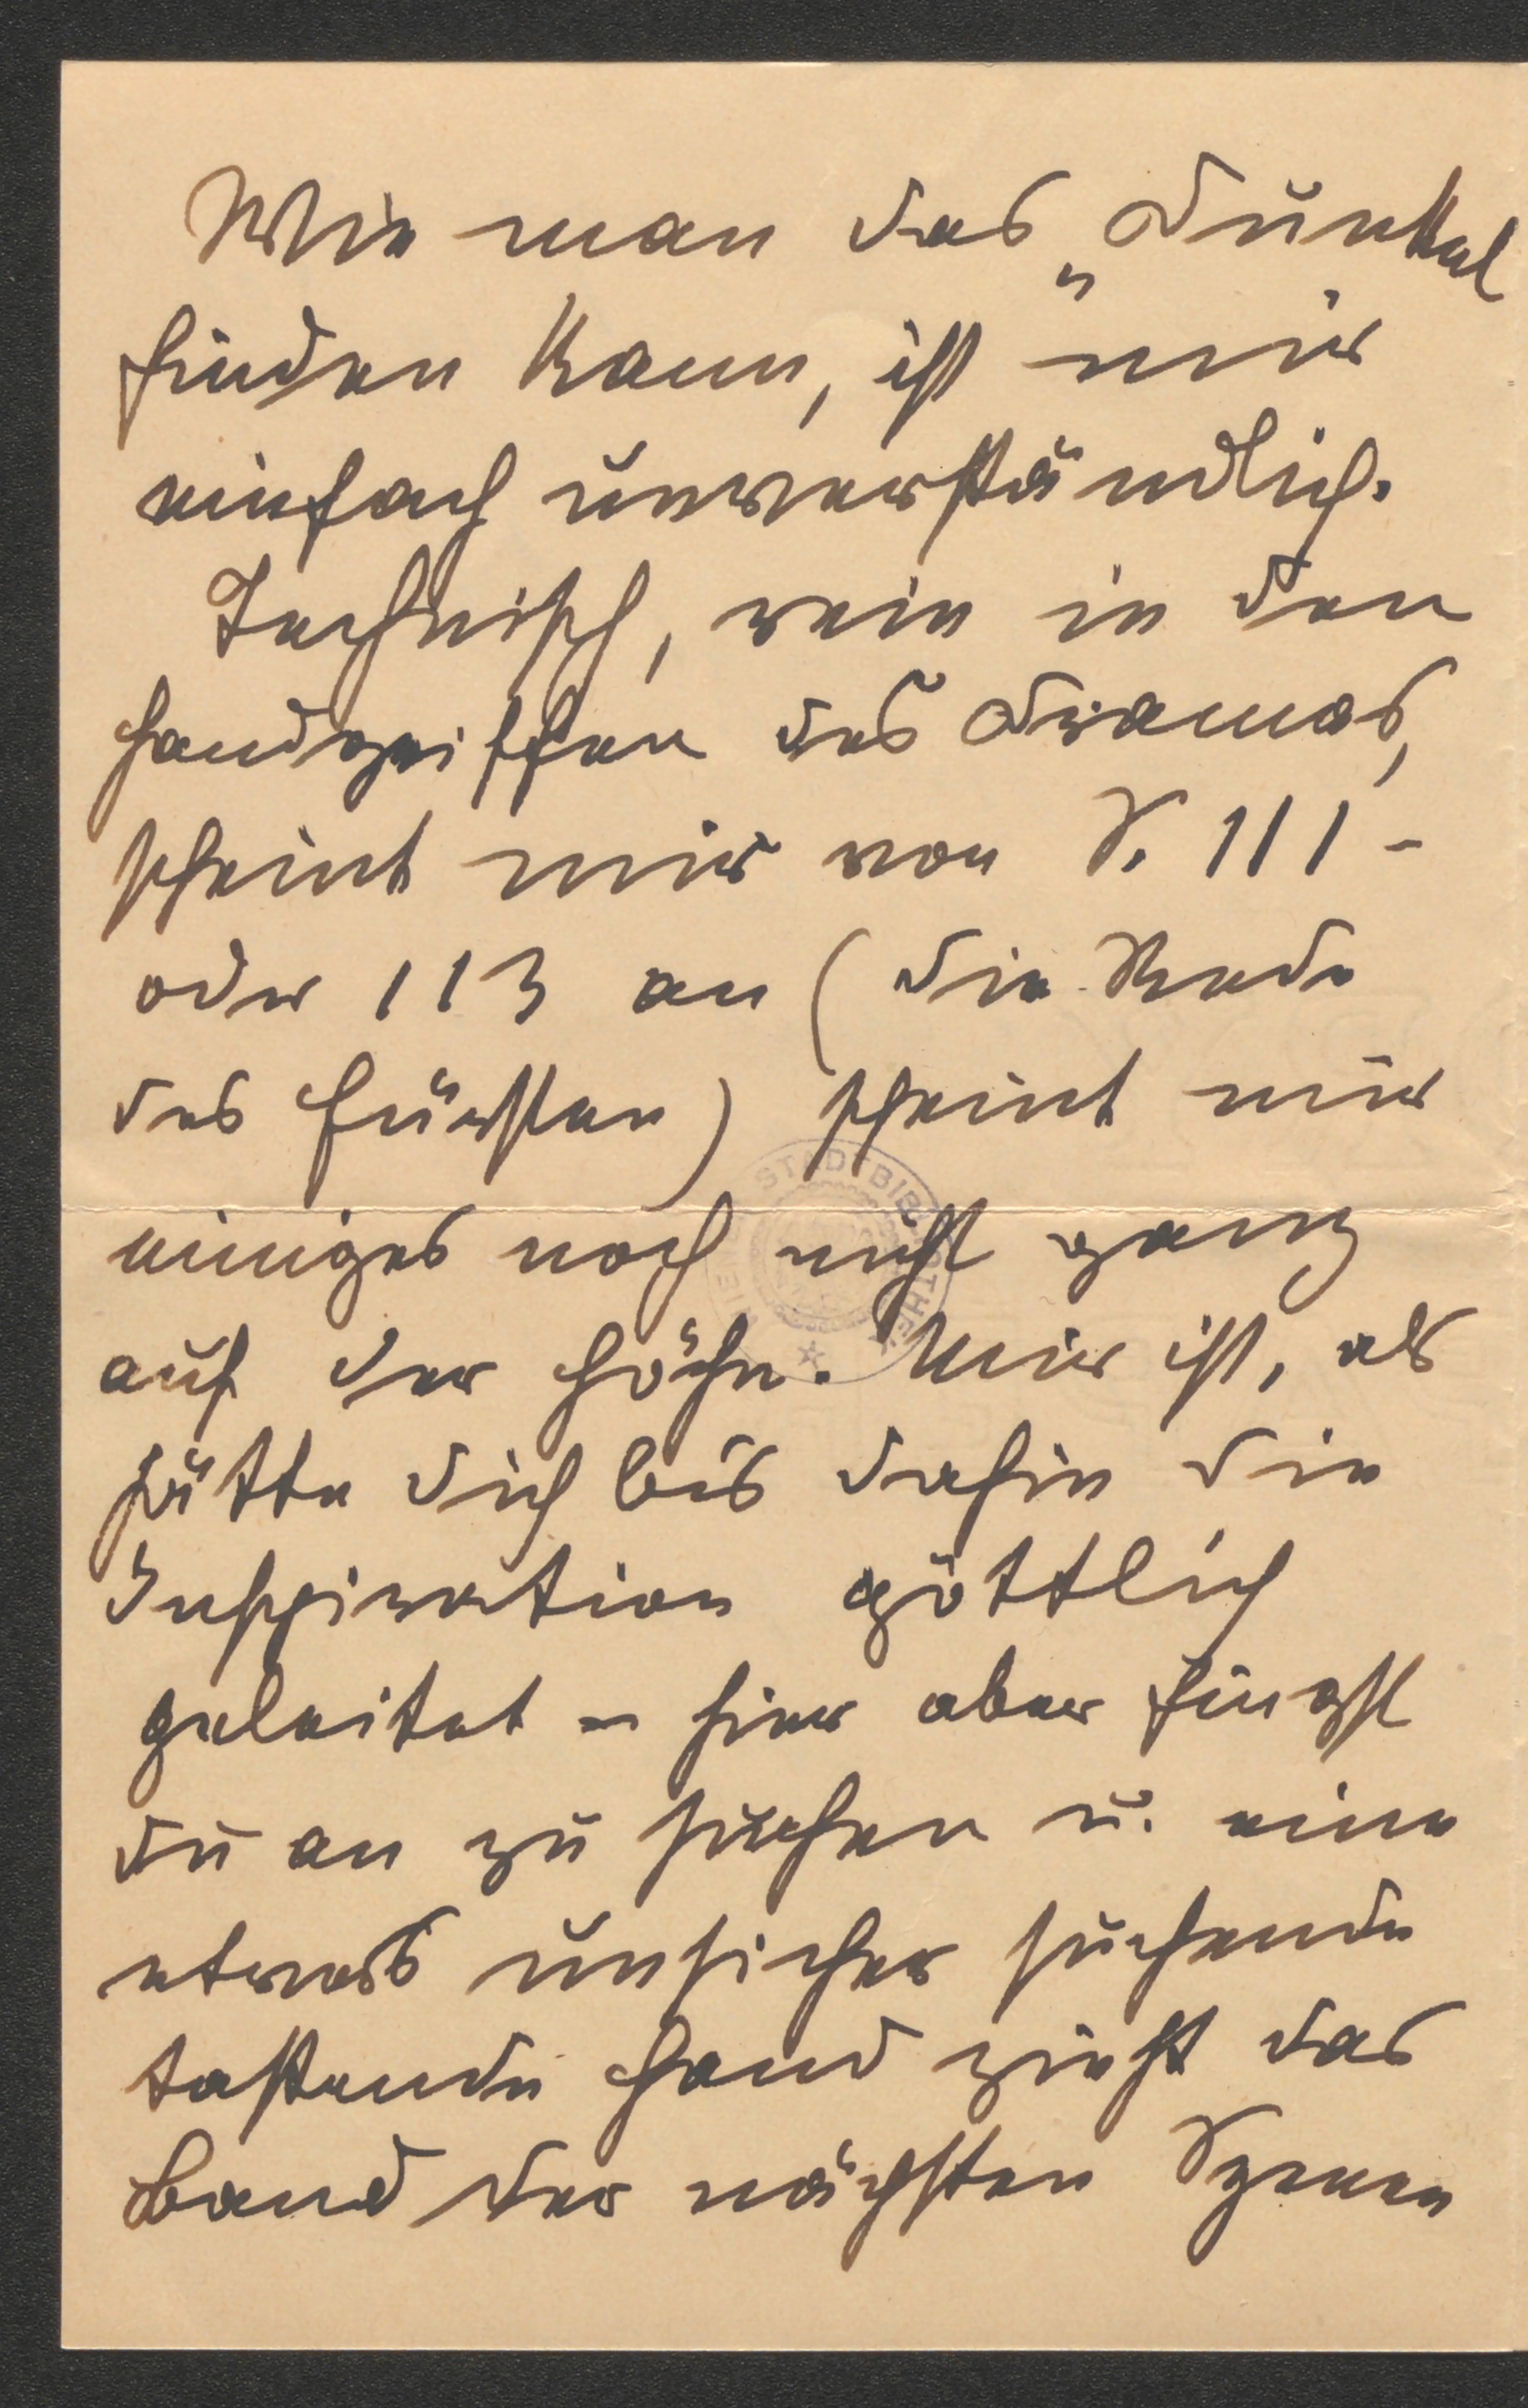 Wie man das „Dunkel
finden kann, ist mir
einfach unverständlich.
Technisch, rein in den
Handgriffen des Dramas,
scheint mir von S. 111 -
oder 113 an (die Rede
des Fürsten) scheint mir
einiges noch nicht ganz
auf der Höhe. Mir ist, als
hätte dich bis dahin die
Inspiration göttlich
geleitet – hier aber fingst
du an zu suchen u. eine
etwas unsicher suchende
tastende Hand zieht das
Band der nächsten Szenen
STADTBIBLIOTHEK
WIEN